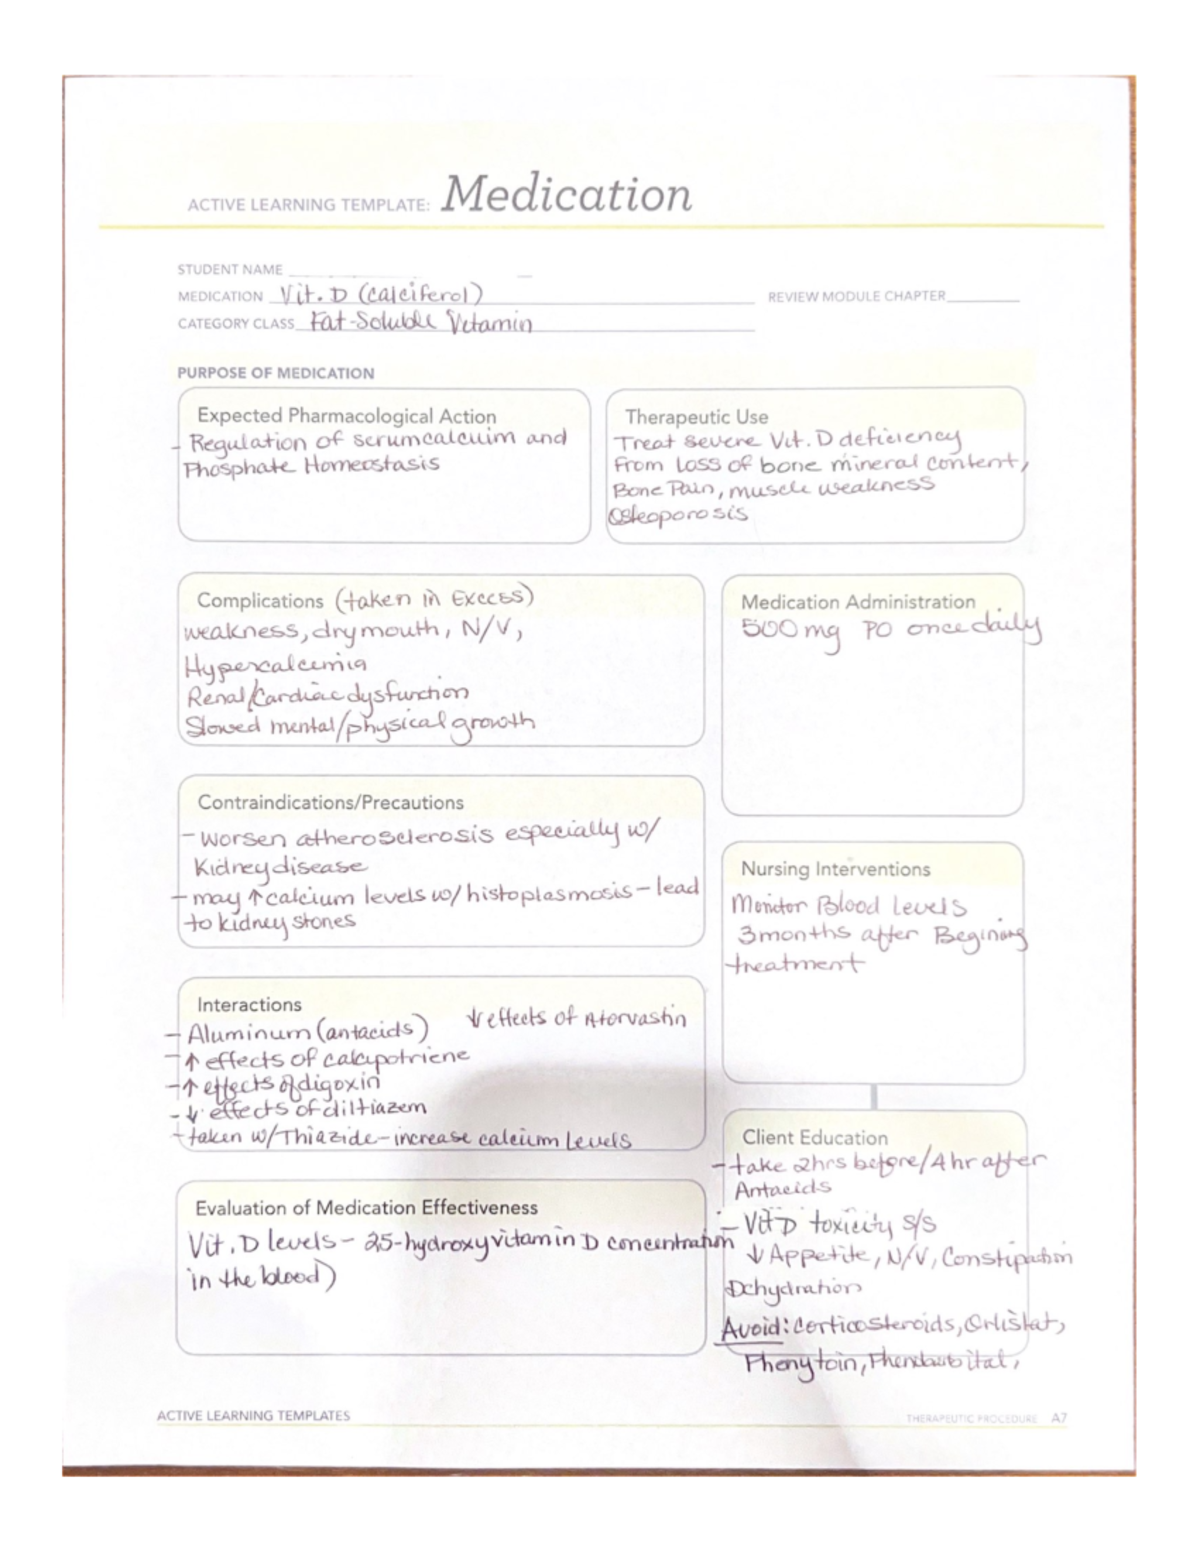 ACTIVE LEARNING TEMPLATE: Medication
STUDENT NAME
MEDICATION Vit. D (calciferol)
REVIEW MODULE CHAPTER
CATEGORY CLASS Fat-Soluble Vitamin
PURPOSE OF MEDICATION
Expected Pharmacological Action
- Regulation of serum calcuim and
Phosphate Homeostasis
Therapeutic Use
Treat severe Vit. D deficiency
From loss of bone mineral content,
Bone Pain, muscle weakness
Osteoporosis
Complications (taken in Excess)
weakness, dry mouth, N/V,
Hypercalcemia
Renal/Cardiac dysfunction
Slowed mental/physical growth
Medication Administration
500 mg PO once daily
Contraindications/Precautions
- Worsen atherosclerosis especially w/
Kidney disease
- may ↑ calcium levels w/ histoplasmosis - lead
to kidney stones
Nursing Interventions
Monitor Blood Levels
3 months after Begining
treatment
Interactions
- Aluminum (antacids) ↓ effects of Atorvastin
- ↑ effects of calcipotriene
- ↑ effects of digoxin
- ↓ effects of diltiazem
- taken w/ Thiazide - increase calcium Levels
Client Education
- take 2hrs before/4hr after
Antacids
- Vit D toxicity s/s
↓ Appetite, N/V, Constipation
Dehydration
Avoid: Corticosteroids, Orlistat,
Phenytoin, Phenobarbital,
Evaluation of Medication Effectiveness
Vit. D levels - 25-hydroxyvitamin D concentration
in the blood)
ACTIVE LEARNING TEMPLATES
THERAPEUTIC PROCEDURE A7